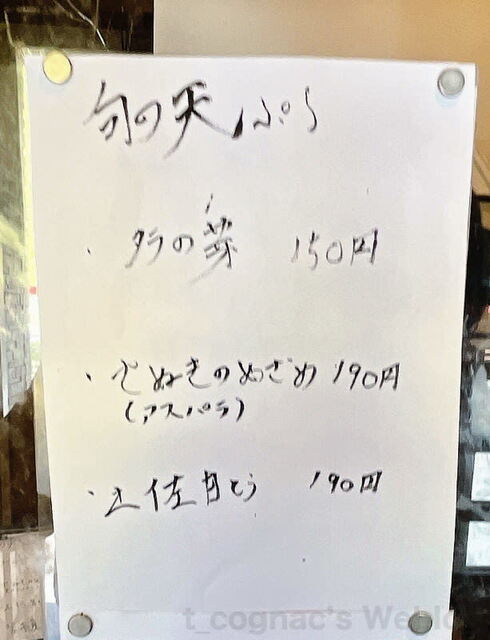 旬の天ぷら
・タラの芽 150円
・さぬきのめざめ 190円
(アスパラ)
・土佐甘とう 190円
t_cognac's Weblog